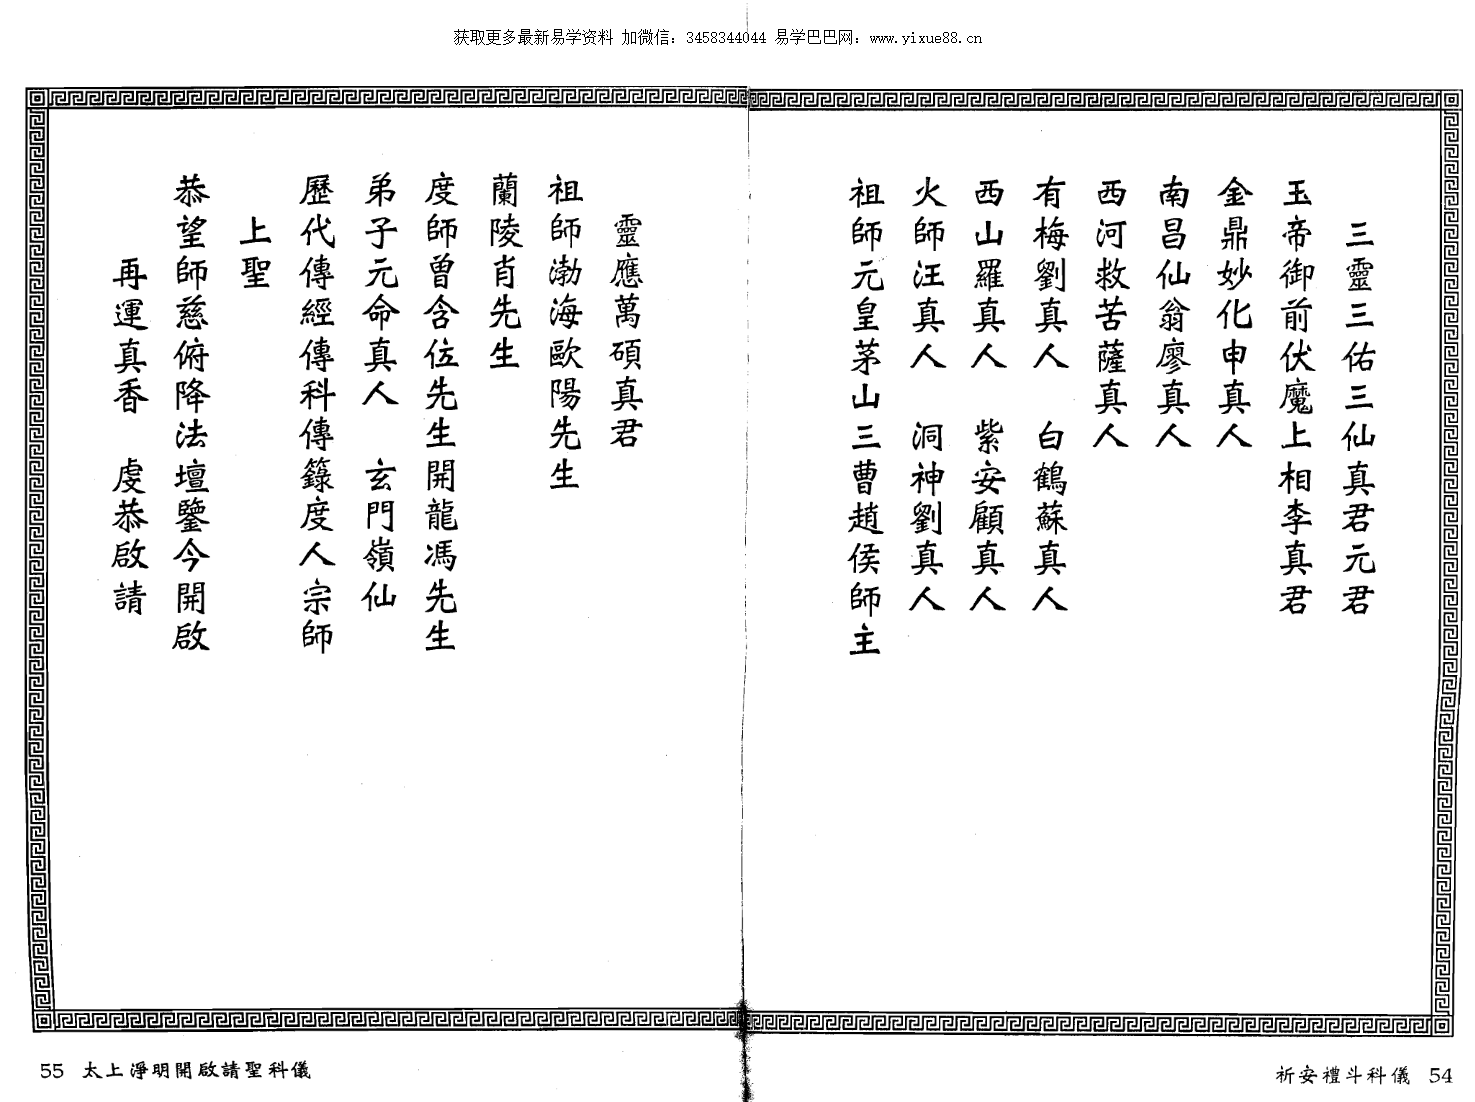 获取更多最新易学资料 加微信：3458344044 易学巴巴网：www.yixue88.cn
三靈三佑三仙真君元君
玉帝御前伏魔上相李真君
金鼎妙化申真人
南昌仙翁廖真人
西河救苦薩真人
有梅劉真人　白鶴蘇真人
西山羅真人　紫安顧真人
火師汪真人　洞神劉真人
祖師元皇茅山三曹趙侯師主
祈安禮斗科儀 54
靈應萬碩真君
祖師渤海歐陽先生
蘭陵肖先生
度師曾含位先生開龍馮先生
弟子元命真人　玄門嶺仙
歷代傳經傳科傳籙度人宗師
上聖
恭望師慈俯降法壇鑒今開啟
再運真香　虔恭啟請
55 太上淨明開啟請聖科儀